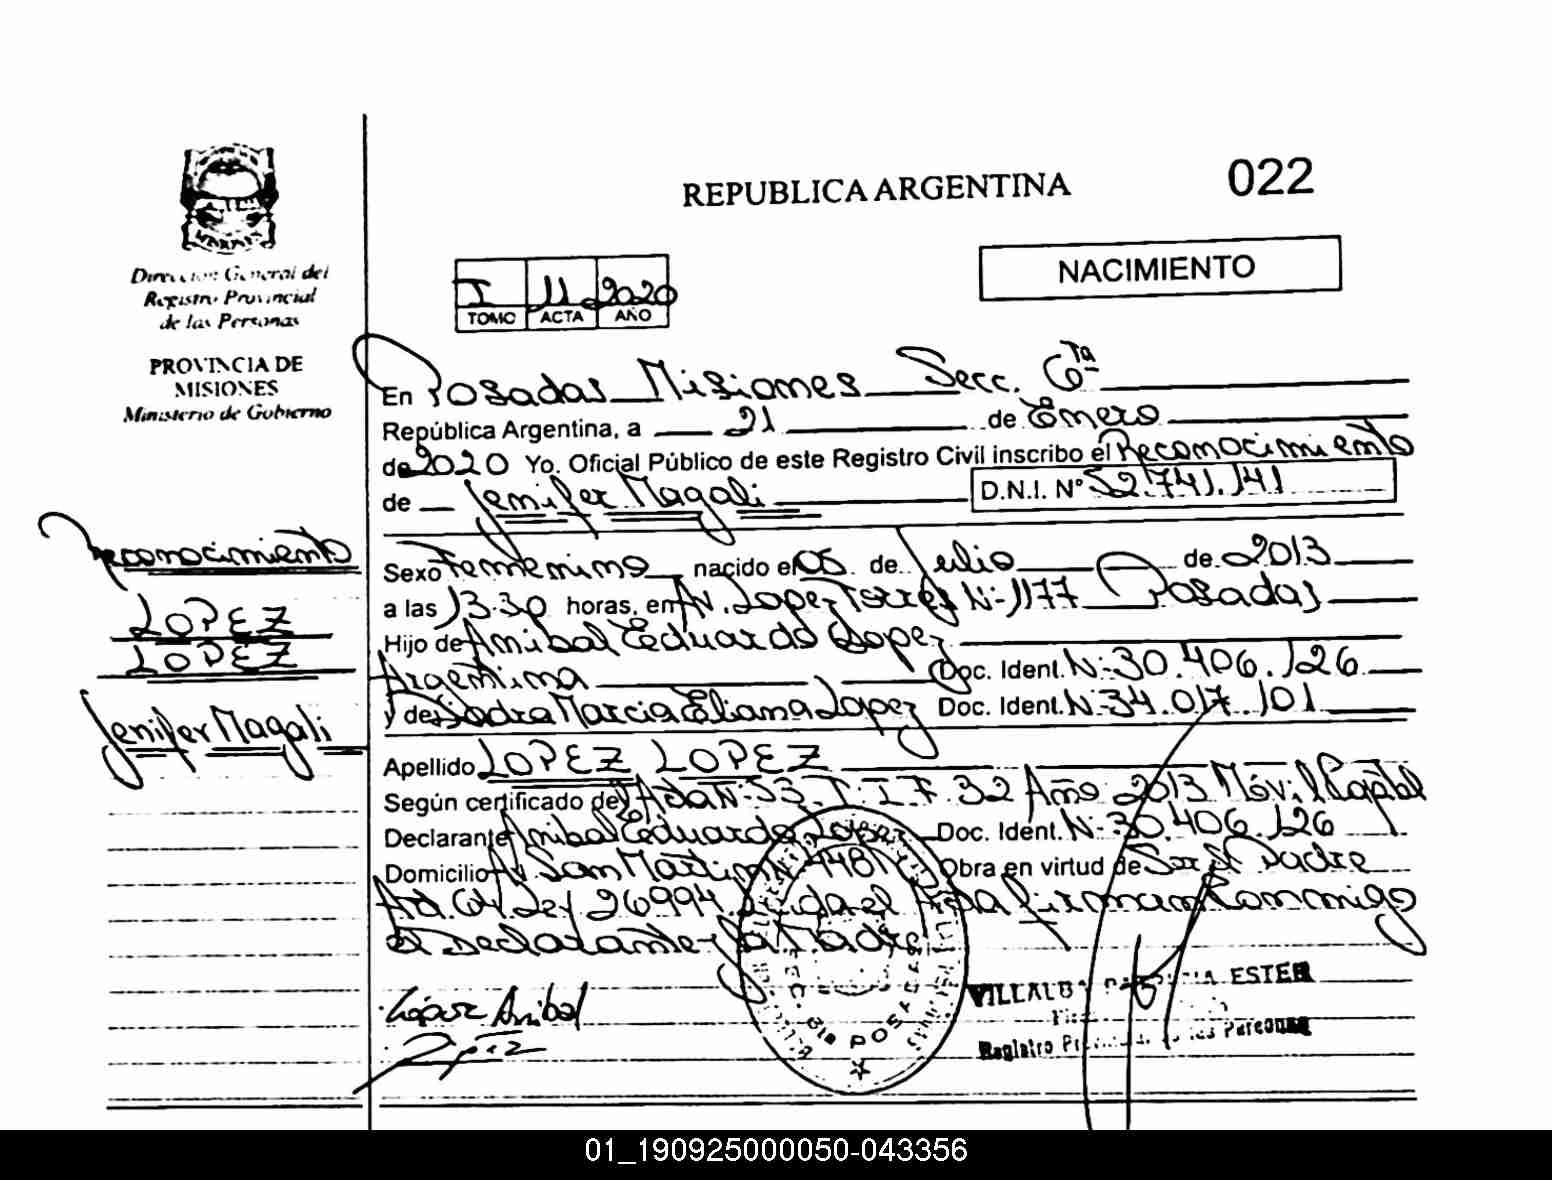 REPUBLICA ARGENTINA
022
Direccion General del
Registro Provincial
de las Personas
PROVINCIA DE
MISIONES
Ministerio de Gobierno
NACIMIENTO
I 11 2020
TOMO ACTA AÑO
En Posadas Misiones Secc. 6ta
República Argentina, a 21 de Enero
de 2020 Yo. Oficial Público de este Registro Civil inscribo el Reconocimiento
de Jenifer Magali D.N.I. N° 52.741.141
Reconocimiento
LOPEZ
LOPEZ
Jenifer Magali
Sexo Femenino nacido el 05 de Julio de 2013
a las 13.30 horas, en Av. Lopez Torres N-1177 Posadas
Hijo de Anibal Eduardo Lopez
Argentina Doc. Ident. N-30.406.126
y de Marcia Eliana Lopez Doc. Ident. N-34.017.101
Apellido LOPEZ LOPEZ
Según certificado de Acta N-53. T. I. F. 32 Año 2013 Móvil Capital
Declarante Anibal Eduardo Lopez Doc. Ident. N-30.406.126
Domicilio Av San Martin N 4481 Obra en virtud de Ser el Padre
Art. 64 Ley 26994. Leida el Acta firman Conmigo
el Declarante y la Madre
López Anibal
VILLALBA ESTER
Registro Personas
POSADAS
01_190925000050-043356